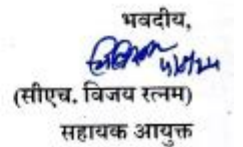 भवदीय,
(सीएच. विजय रत्नम)
सहायक आयुक्त